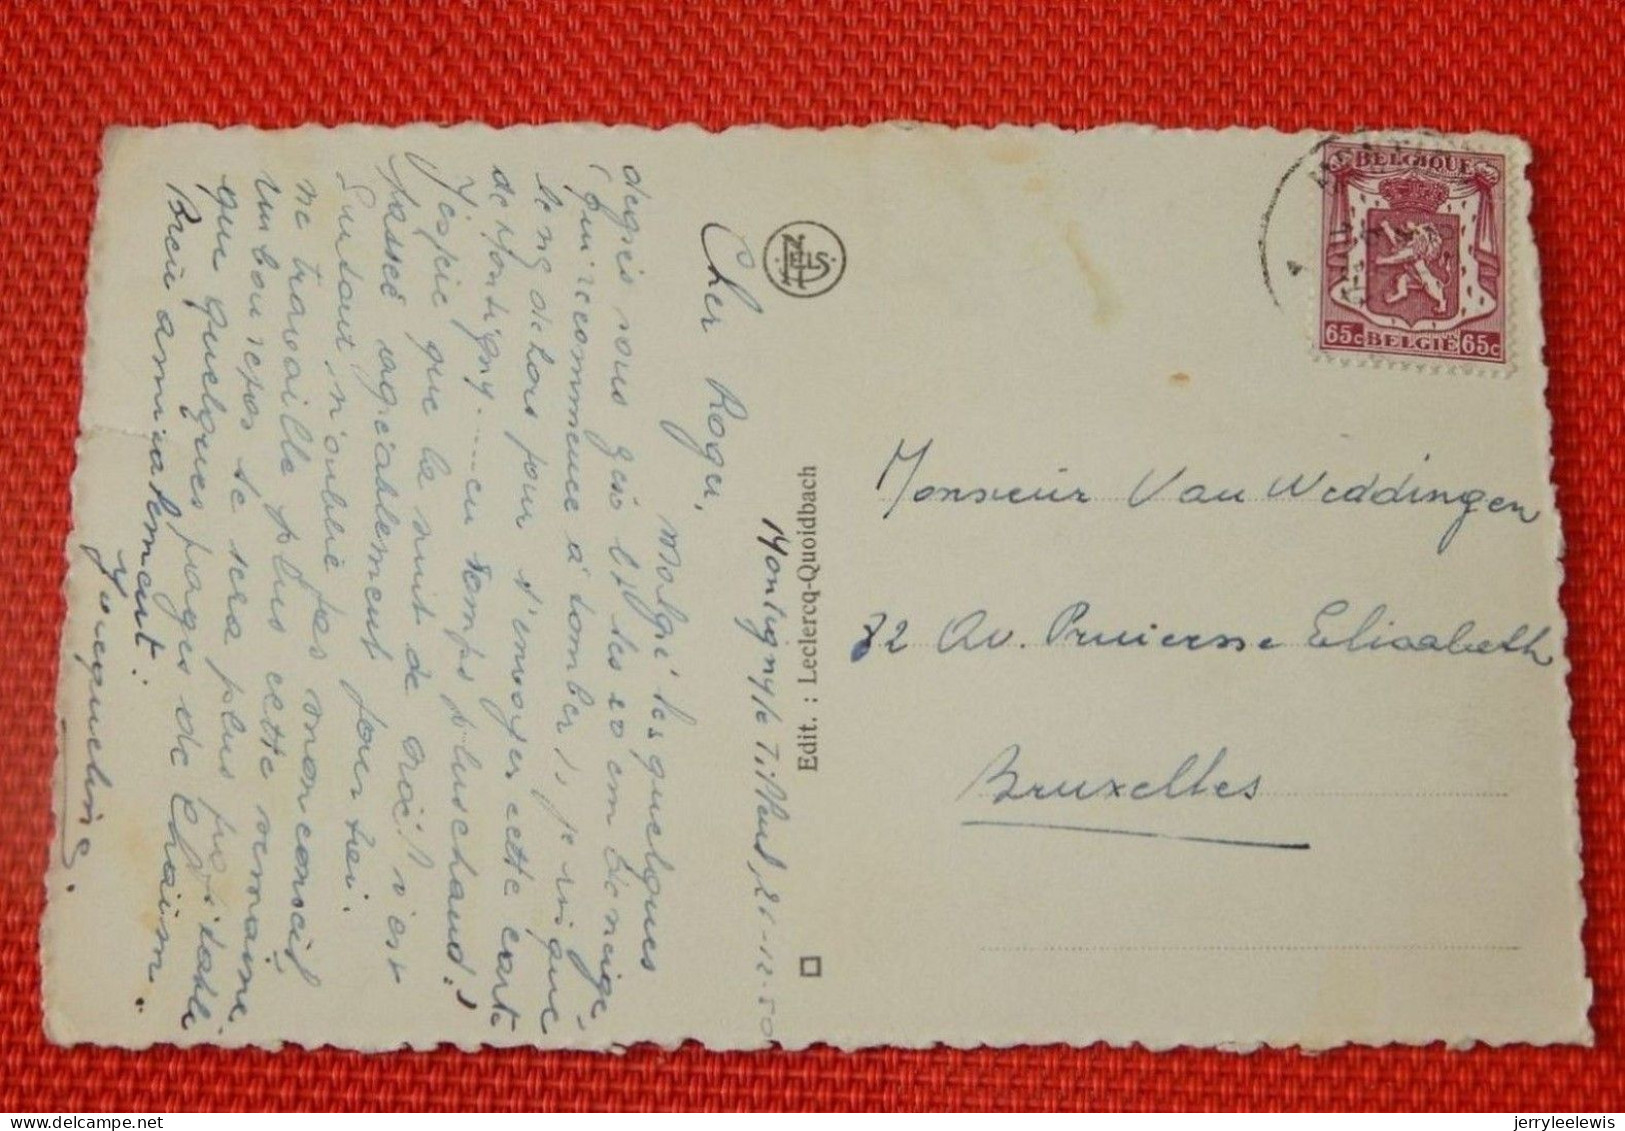 Montigny le Tilleul, 21-12-50
Cher Roger,
Malgré les quelques
degrés sous zéro et les 20 cm de neige,
(qui recommence à tomber), je risque
le nez dehors pour t'envoyer cette carte
de Montigny..... en temps plus chaud!
J'espère que la nuit de Noël s'est
passée agréablement pour toi.
Surtout, n'oublie pas mon conseil
ne travaille plus cette semaine,
un bon repos te sera plus profitable
que quelques pages de
Bien amicalement.
Jacqueline.
NELS
Edit. : Leclercq-Quoidbach
BELGIQUE
65c BELGIË 65c
Monsieur Van Weddingen
32 Av. Princesse Elisabeth
Bruxelles
jerryleelewis